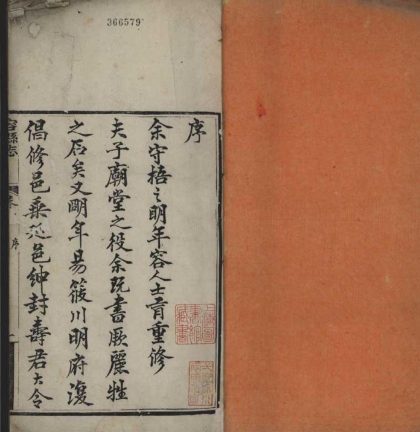 366579
序
余守梧之明年容人士肯重修
夫子廟堂之役余既書厥麗牲
之石矣又明年易筱川明府復
倡修邑乘延邑紳封壽君大令
容縣志
卷
序